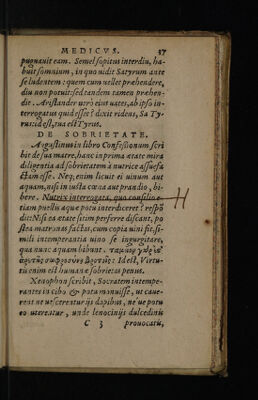 MEDICVS. 37
pugnauit eam. Semel sopitus interdiu, ha-
buit somnium, in quo uidit Satyrum ante
se ludentem: quem cum uellet præhendere,
diu non potuit: sed tandem tamen præhen-
dit. Aristander uerò eius uates, ab ipso in-
terrogatus quid esset? dixit ridens, Sa Ty-
rus: id est, tua est Tyrus.
DE SOBRIETATE.
Augustinus in libro Confessionum scri
bit de sua matre, hanc in prima ætate mira
diligentia ad sobrietatem à nutrice assuefa
ctam esse. Neque enim licuit ei uinum aut
aquam, nisi in iusta cœna aut prandio, bi-
bere. Nutrix interrogata, quo consilio e-
tiam puellis aquæ potu interdiceret? respō
dit: Nisi ea ætate sitim perferre discant, po
stea matronas factas, cum copia uini fit, si-
mili intemperantia uino se ingurgitare,
qua nunc aquam bibunt.
ἀρετῆς σωφροσύνη Id est, Virtu-
tis enim est humanæ sobrietas penus.
Xenophon scribit, Socratem intempe-
rantes in cibo & potu monuisse, ut caue-
rent ne uescerentur ijs dapibus, ne´ue potu
eo uterentur, unde lenocinijs dulcedinis
C 3 prouocati,
H